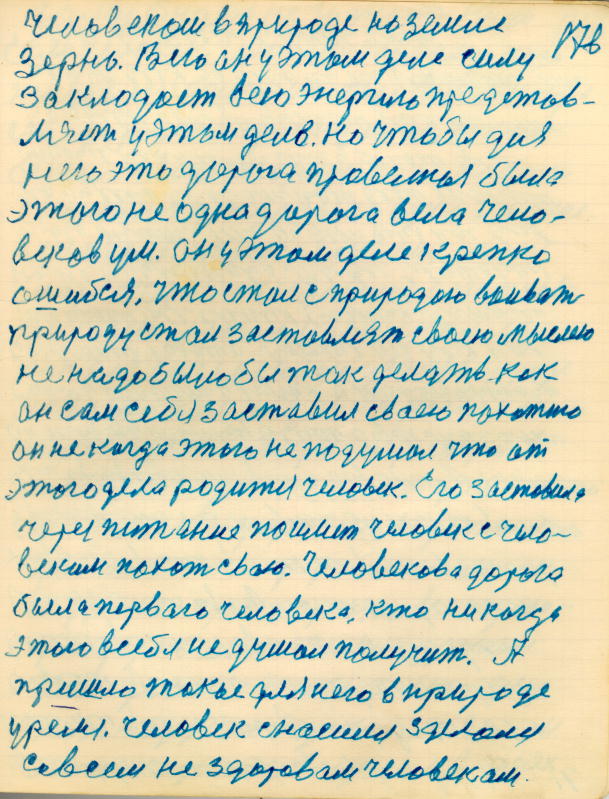 человеком в природе на земле 176
зернь. В его он у этом деле силу
закладает всею энергило предстов-
ляет у этом дело. но чтобы для
него это дорога провелися была
этого не одна дорога вела чело-
веков ум. он у этом деле крепко
ошибся, что стал с природою воивать
природу стал заставлят своею мыслею
не надо было бы так делать. как
он сам себя заставил сваею похотью
он не когда этого не подумал что от
этого дела родится человек. Его заставила
через питание пошлит человек с чело-
веким похот сваю. Человекова дорога
была перваго человека, кто никогда
этого в себя не думал получит. А
пришло такое для него в природе
уремя. человек снасился зделался
совсем не здоровам человекам.